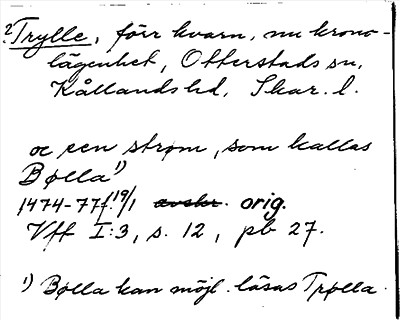 2 Trylle, förr kvarn, nu krono-
lägenhet, Otterstads sn,
Kållands hd, Skar. l.
oc een strøm, som kallas
Bølla 1)
1474-77 f. 19/1 avskr. orig.
Vff I:3, s. 12, pb 27.
1) Bølla kan möjl. läsas Trølla.